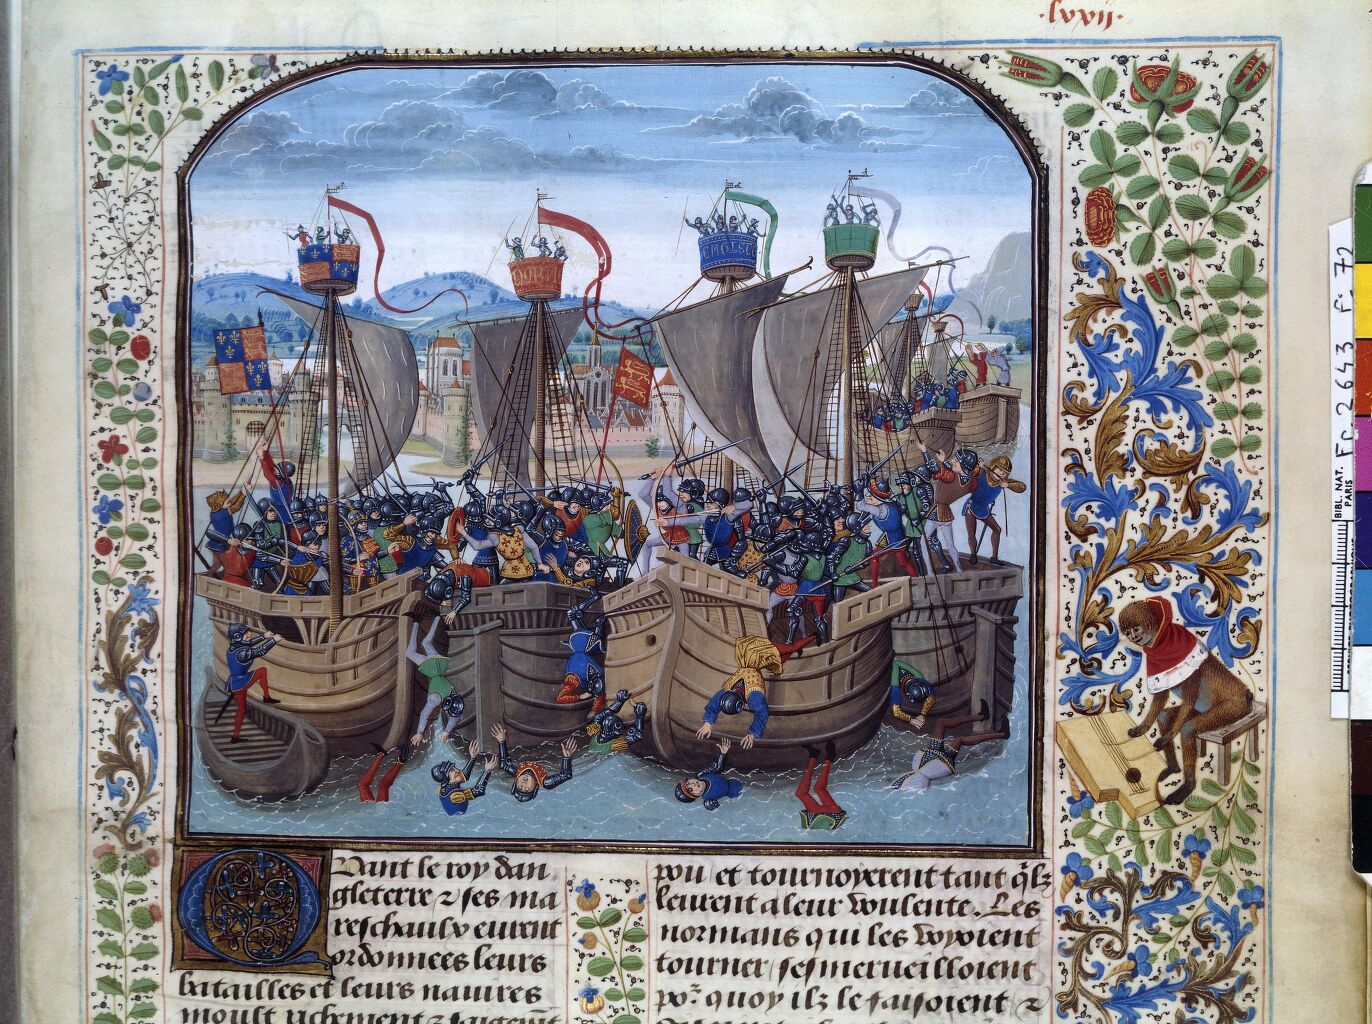 ·lxxii·
Quant le roy dan-
gleterre ⁊ ses ma
reschaulx eurent
ordonnees leurs
batailles et leurs navires
moult richement ⁊ saigem̄t
pou et tournoyerent tant q̄lz
leurent a leur voulente. Les
normans qui les veoient
tourner / sesmerveilloient
po2 quoy ilz le faisoient ⁊
BIBL. NAT.
PARIS
Fr. 2643 F. 72